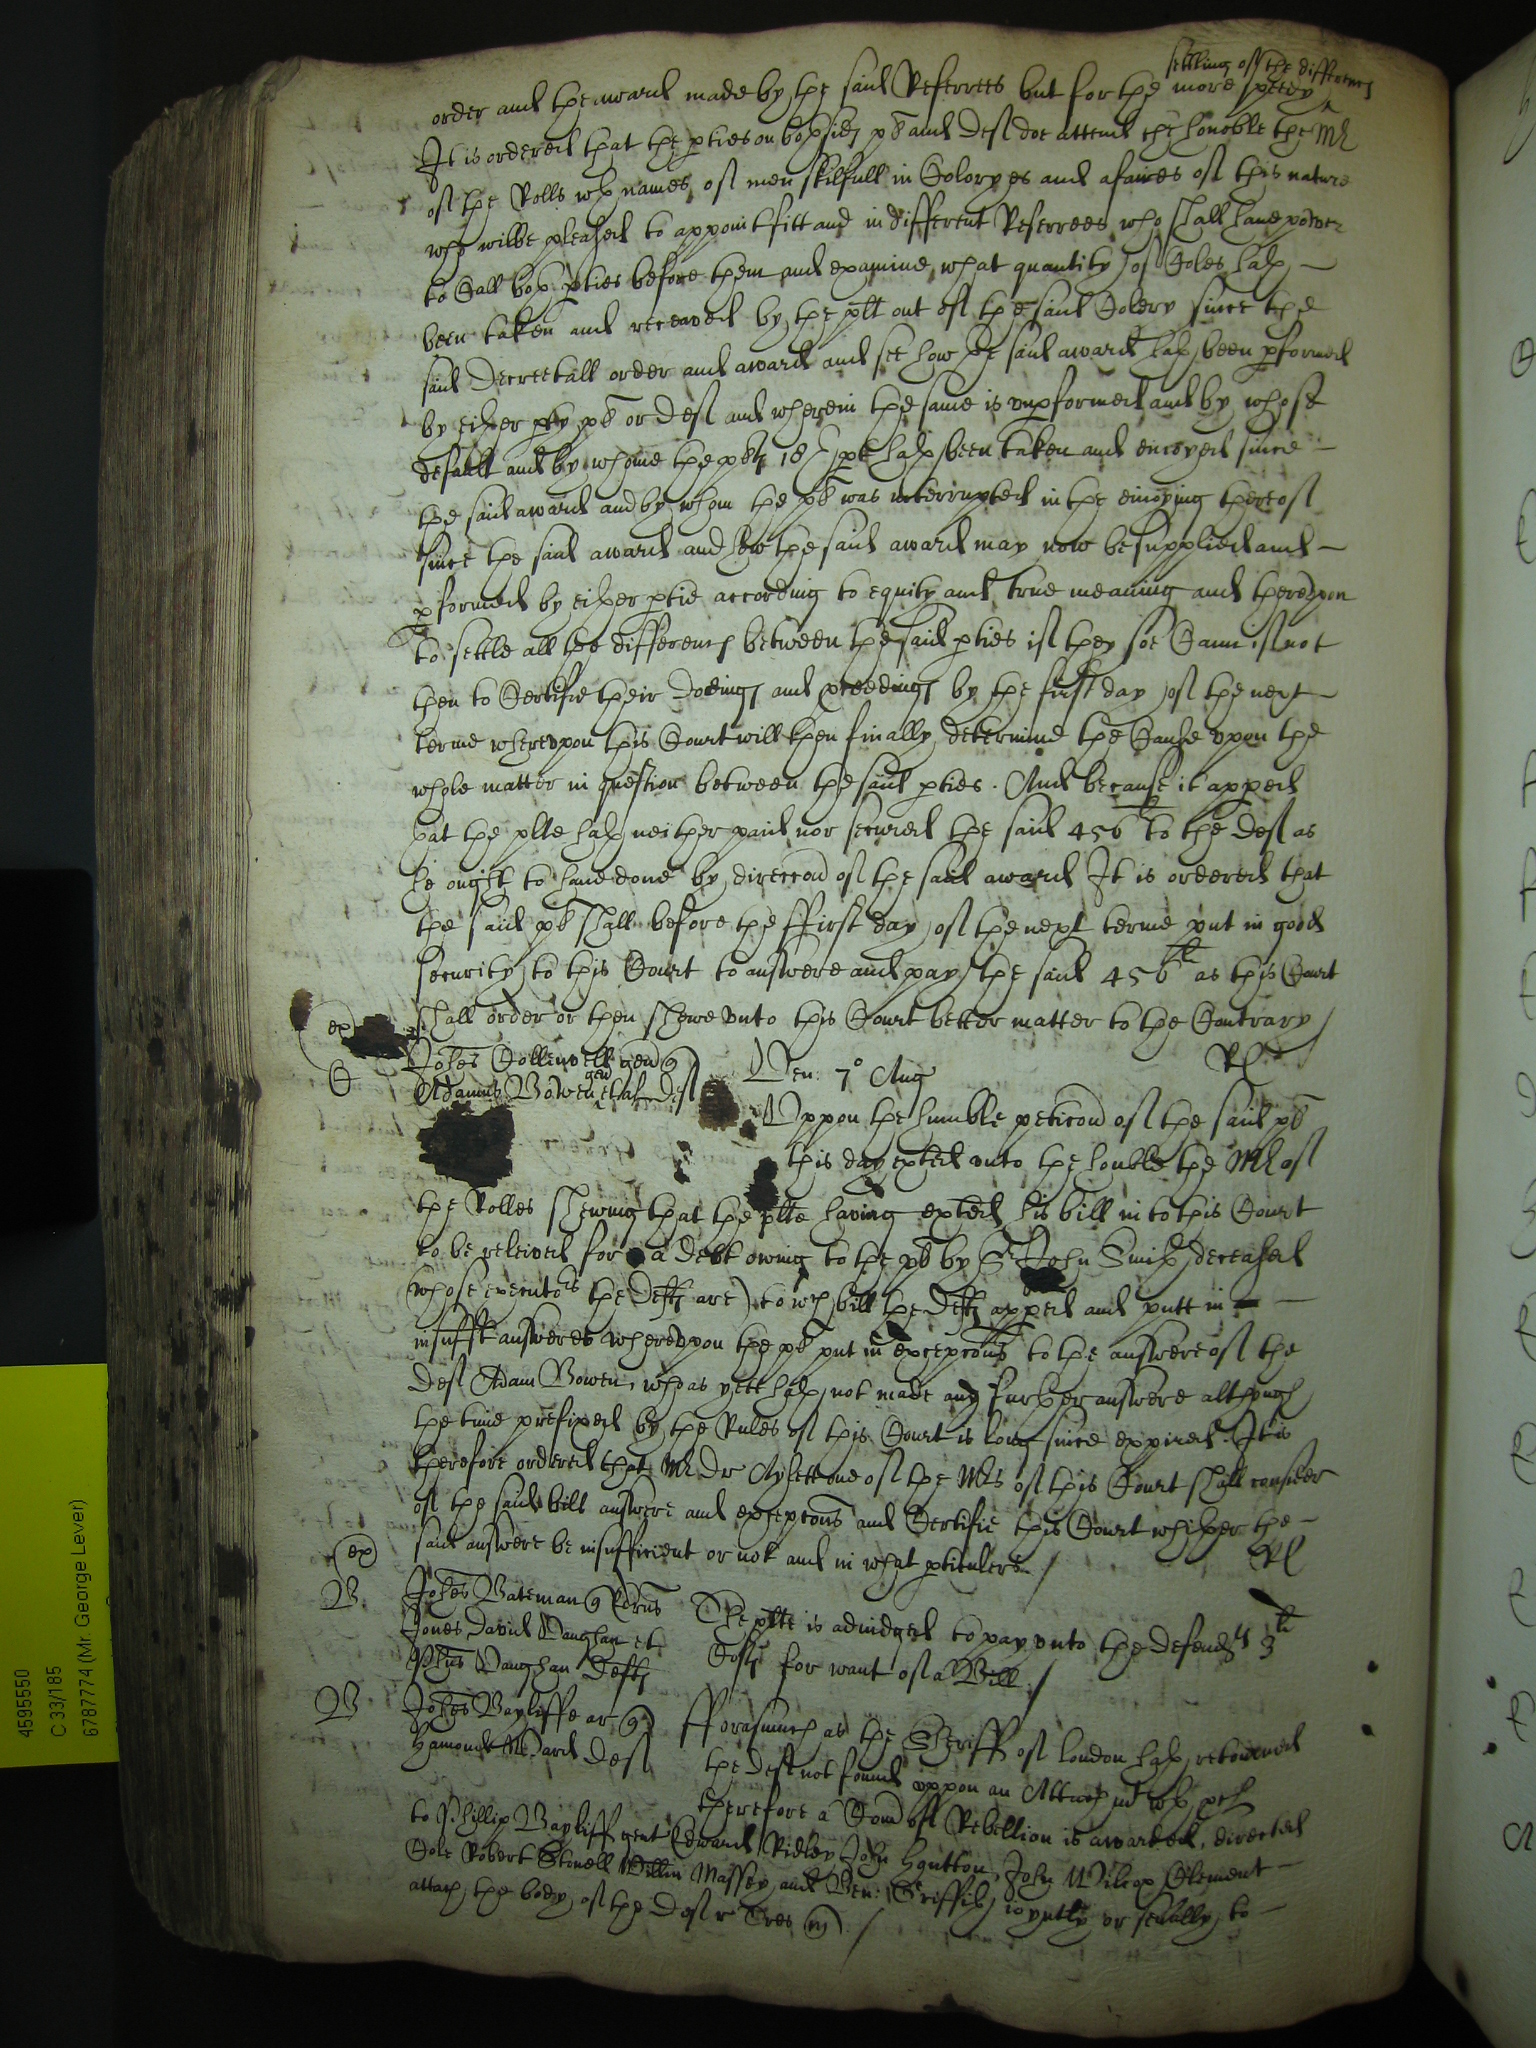 settling of the differences
order and the award made by the said Referrees but for the more speedy ^
It is ordered that the pties on both sides pl and Def doe attend the honoble the Mr
of the Rolls wth names of men skilfull in Coloryes and afaires of this nature
who wilbe pleased to appoint fitt and indifferent Referrees who shall have power
to Call both pties before them and examine what quantity of Coles hath
been taken and receaved by the plt out of the said Colery since the
said Decreetall order and award and see how the said award hath been pformed
by either pty pl or Def and wherein the same is vnpformed and by whose
default and by whome the pls 18 pt hath been taken and enioyed since
the said award and by whom the pl was interrupted in the enioying thereof
since the said award and how the said award may now be supplied and
pformed by either ptie according to equity and true meaning and therevpon
to settle all the differences between the said pties if they soe Cann if not
then to Certifie their doeings and pceedings by the first day of the next
terme wherevpon this Court will then finally determine the Cause vpon the
whole matter in question between the said pties. And because it appeed
that the plte hath neither paid nor secured the said 456li to the Def as
he ought to have done by direccon of the said award It is ordered that
the said pl shall before the ffirst day of the next terme put in good
security to this Court to answere and pay the said 456li as this Court
shall order or then shewe vnto this Court better matter to the Contrary /
ex
Rl
C Johes Collinwell gen q
Adamus Bowen gen et al Def
Ven. 7o Aug
Vppon the humble peticon of the said pl
this day exhted vnto the honble the Mr of
the Rolles shewing that the plte having exhted his bill into this Court
to be releived for a debt owing to the pl by Sr John Smith deceased
(whose executors the Defts are) to wch bill the Defts appeed and putt in
insufft answeres wherevpon the pl put in excepcons to the answere of the
Def Adam Bowen, who as yett hath not made any further answere although
the time prefixed by the Rules of this Court is long since expired. It is
therefore ordered that Mr Dr Aylett one of the Mrs of this Court shall consider
of the said bill answere and excepcons and Certifie this Court whither the
said answere be insufficient or not and in what pticulers. /
Rl
ex
B. Johes Bateman q
Jones David Vaughan et
Vaughan Defts
The plte is adiudged to pay vnto the defendts 3li
Costs for want of a Bill /
B. Johes Bayliffe ar q
Hamond Ward Def
fforasmuch as the Sheriff of London hath retorned
the Deft not found vppon an Attachmt wth pch
therefore a Com of Rebellion is awarded, directed
to Phillip Bayliff gent Edward Ridley John Hutton, John Wilcox Clement
Cole Robert Stonell Willm Massey and Ben: Griffith ioyntly or seually to
attach the body of the Def r Cres m /
4595550
C 33/185
6787774 (Mr. George Lever)